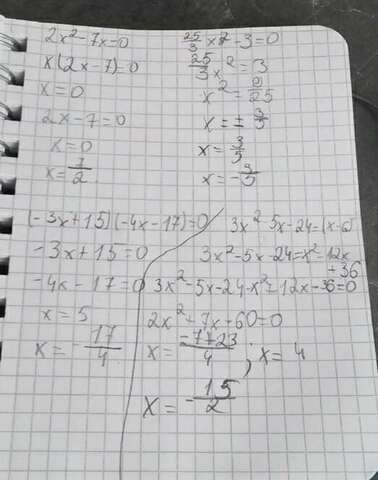 2x²-7x=0
x(2x-7)=0
x=0
2x-7=0
x=0
x=7/2
25/3 x²-3=0
25/3 x²=3
x²=9/25
x=±3/5
x=3/5
x=-3/5
(-3x+15)(-4x-17)=0
-3x+15=0
-4x-17=0
x=5
x=-17/4
3x²-5x-24=(x-6)
3x²-5x-24=x²-12x
+36
3x²-5x-24-x²+12x-36=0
2x²+7x+60=0
x=-7+23/4; x=4
x=-15/2